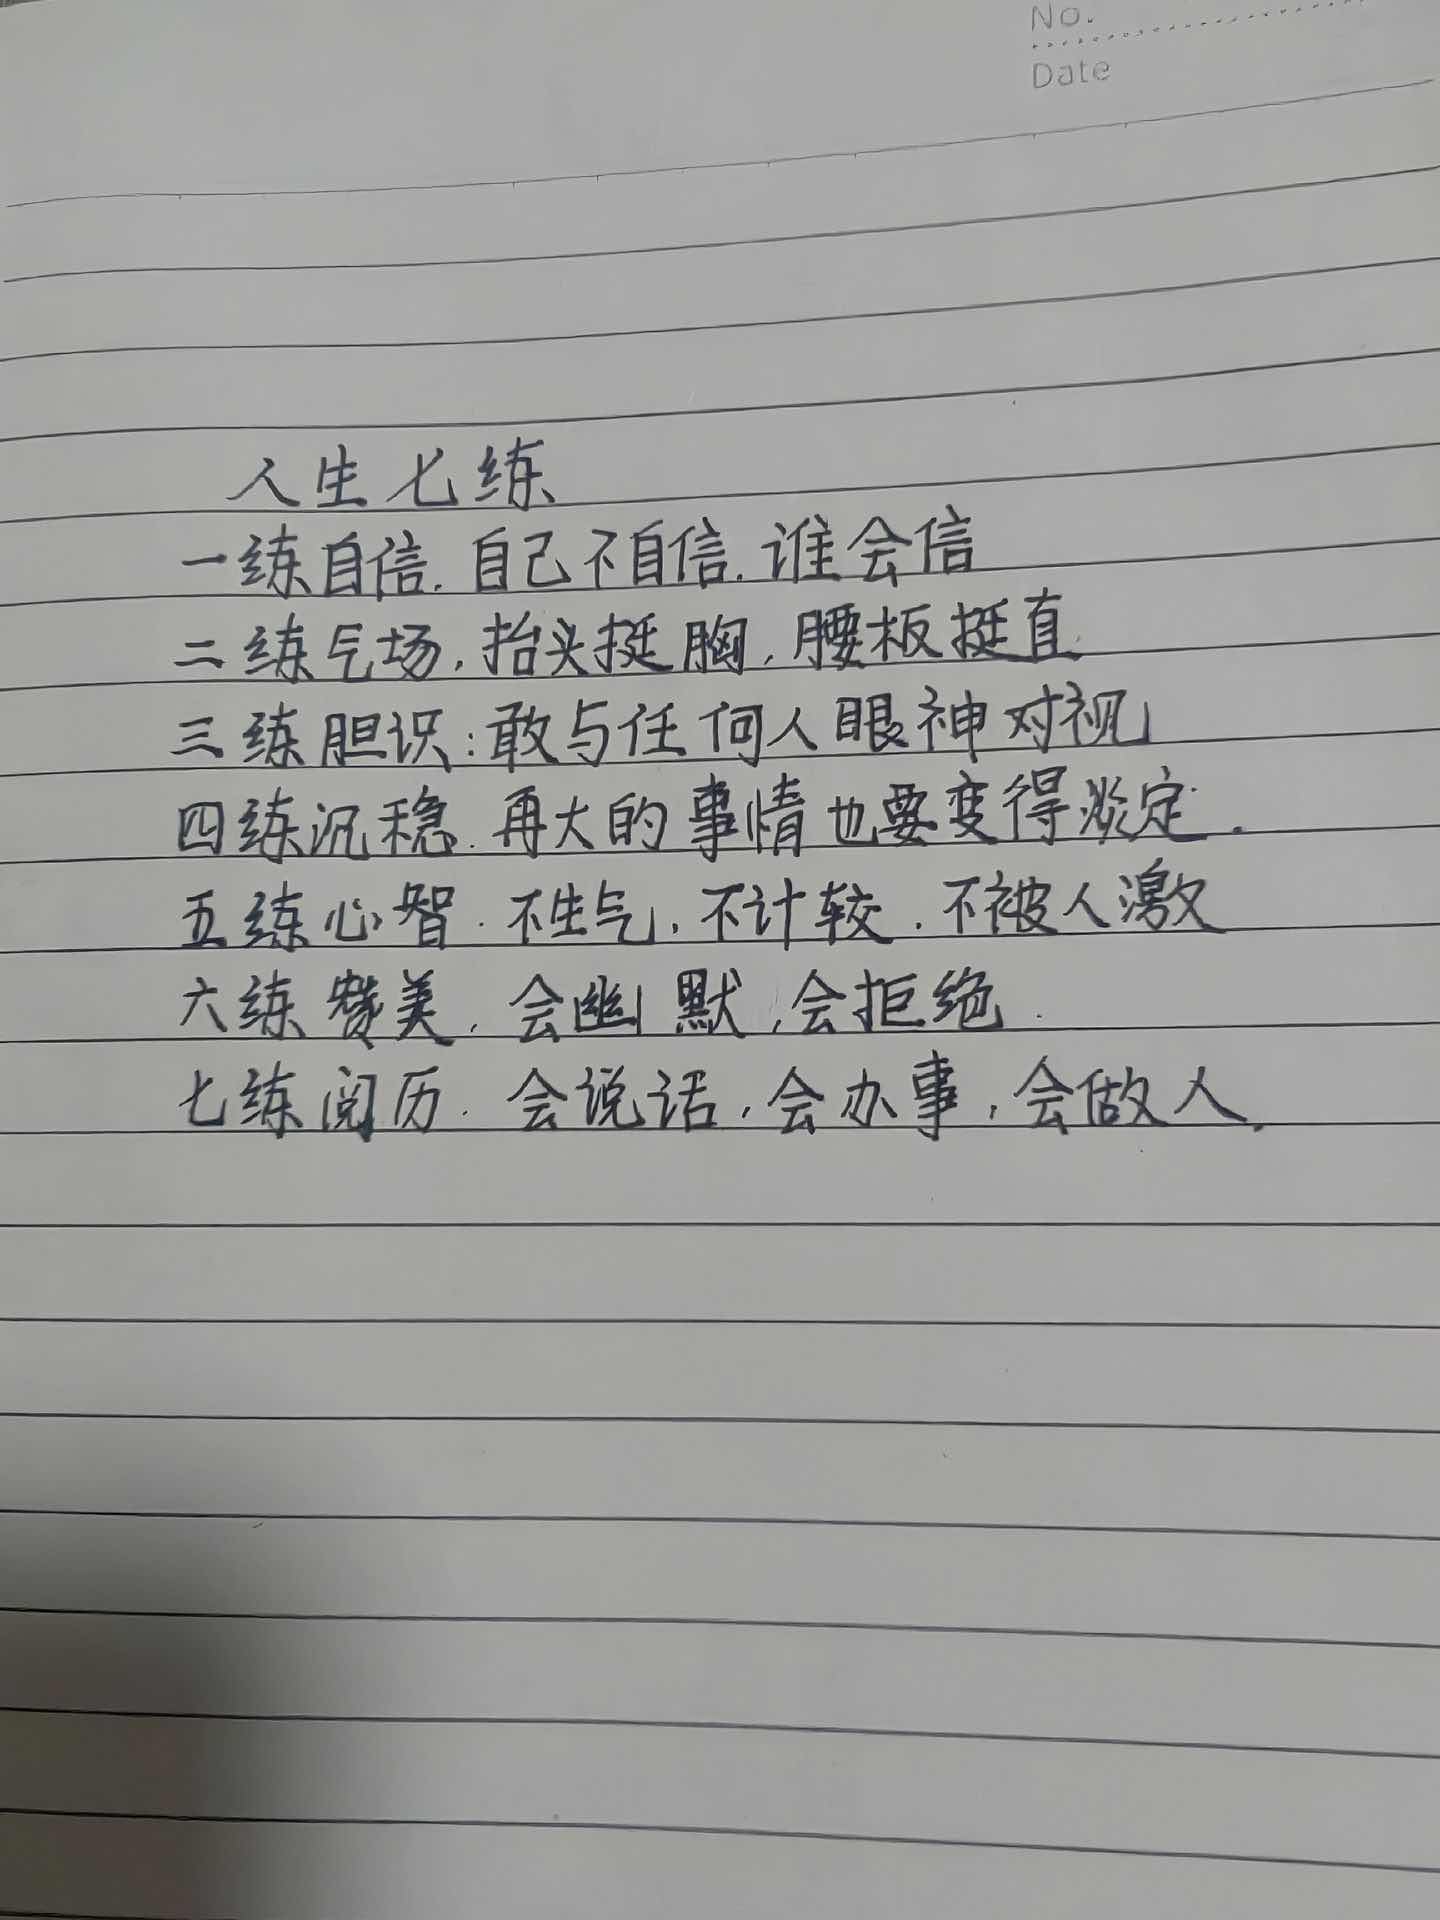 No.
Date
人生七练
一练自信.自己不自信.谁会信
二练气场,抬头挺胸,腰板挺直
三练胆识:敢与任何人眼神对视
四练沉稳.再大的事情也要变得淡定.
五练心智.不生气,不计较.不被人激
六练赞美,会幽默,会拒绝.
七练阅历.会说话,会办事,会做人.